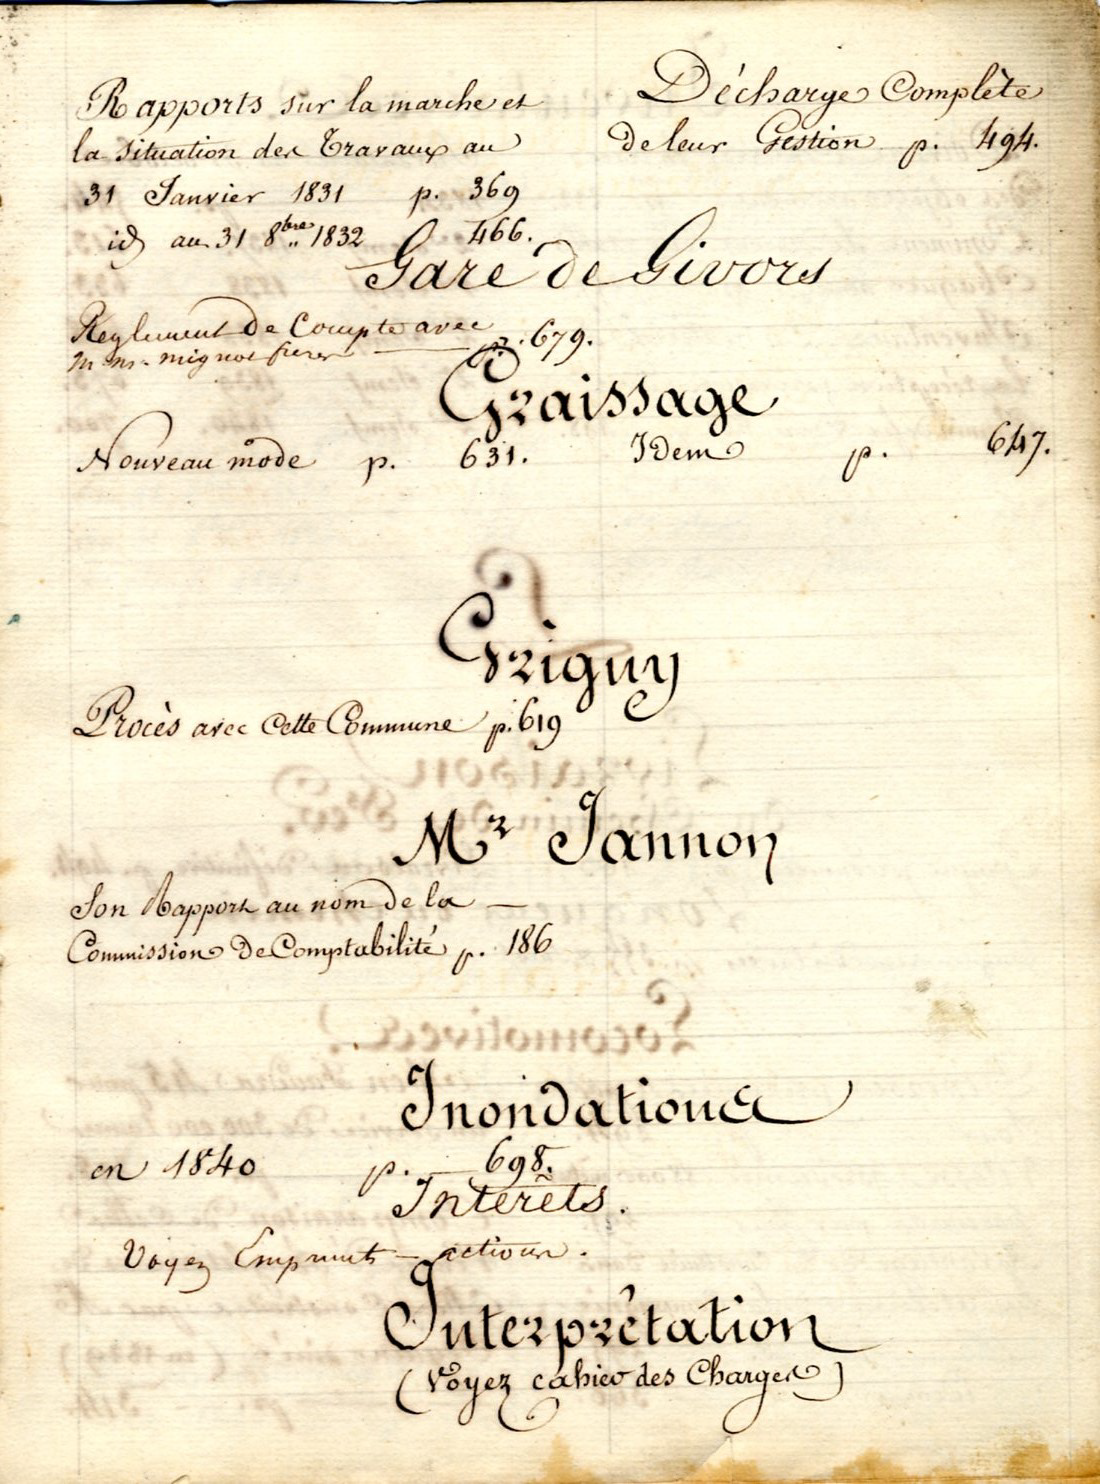 Rapports sur la marche et
la situation des Travaux au
31 Janvier 1831 p. 369
id au 31 8bre 1832 466.
Décharge Complète
de leur Gestion p. 494.
Gare de Givors
Reglement de Compte avec
m. m. mignot freres p. 679.
Graissage
Nouveau mode p. 631. Idem p. 647.
Grigny
Procès avec cette Commune p. 619
Mr Jannon
Son Rapport au nom de la —
Commission de Comptabilité p. 186
Inondations
en 1840 p. 698.
Intérêts.
Voyez Emprunts — actions.
Interprêtation
(Voyez cahier des Charges)